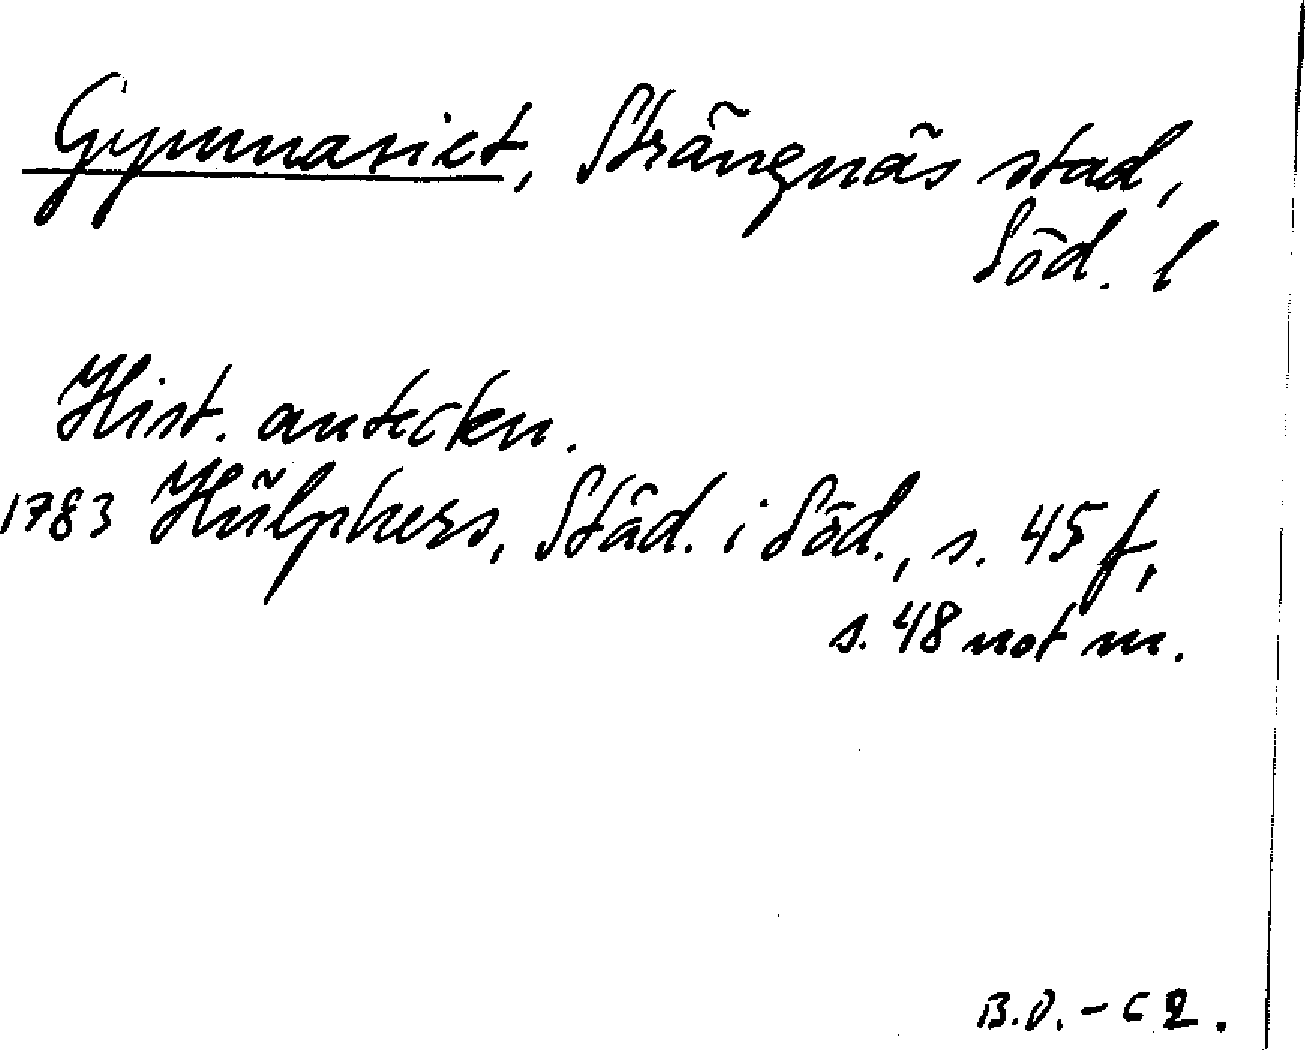 Gymnasiet, Strängnäs stad,
Söd. l
Hist. antecken.
1783 Hülphers, Städ. i Söd., s. 45 f,
s. 48 not m.
B.O. - C 2.